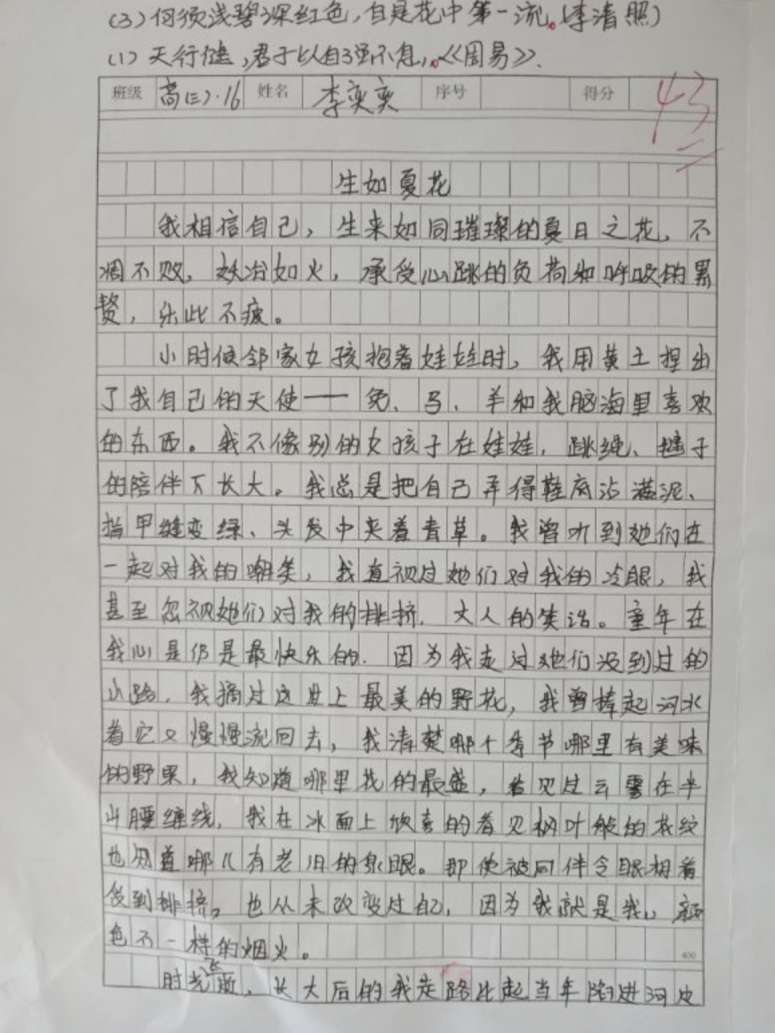 (3) 何须浅碧深红色,自是花中第一流。(李清照)
(1) 天行健,君子以自强不息。《周易》.
班级 高(三)·16 姓名 李奕奕 序号 得分 43
生如夏花
我相信自己,生来如同璀璨的夏日之花,不
凋不败,妖冶如火,承受心跳的负荷和呼吸的累
赘,乐此不疲。
小时候邻家女孩抱着娃娃时,我用黄土捏出
了我自己的天使——兔、马、羊和我脑海里喜欢
的东西。我不像别的女孩子在娃娃,跳绳、毽子
的陪伴下长大。我总是把自己弄得鞋底沾满泥、
指甲缝变绿、头发中夹着青草。我曾听到她们在
一起对我的嘲笑,我直视过她们对我的冷眼,我
甚至忽视她们对我的排挤.大人的笑话。童年在
我心是仍是最快乐的.因为我走过她们没到过的
小路.我摘过这世上最美的野花,我曾捧起河水
看它又慢慢流回去,我清楚哪个季节哪里有美味
的野果,我知道哪里花的最盛,看见过云雾在半
山腰缠绕,我在冰面上欣喜的看见枫叶般的花纹
也知道哪儿有老旧的泉眼。即使被同伴令眼相看
受到排挤,也从未改变过自己,因为我就是我,颜
色不一样的烟火。
400
时光飞逝,长大后的我走路比起当年踏进河皮